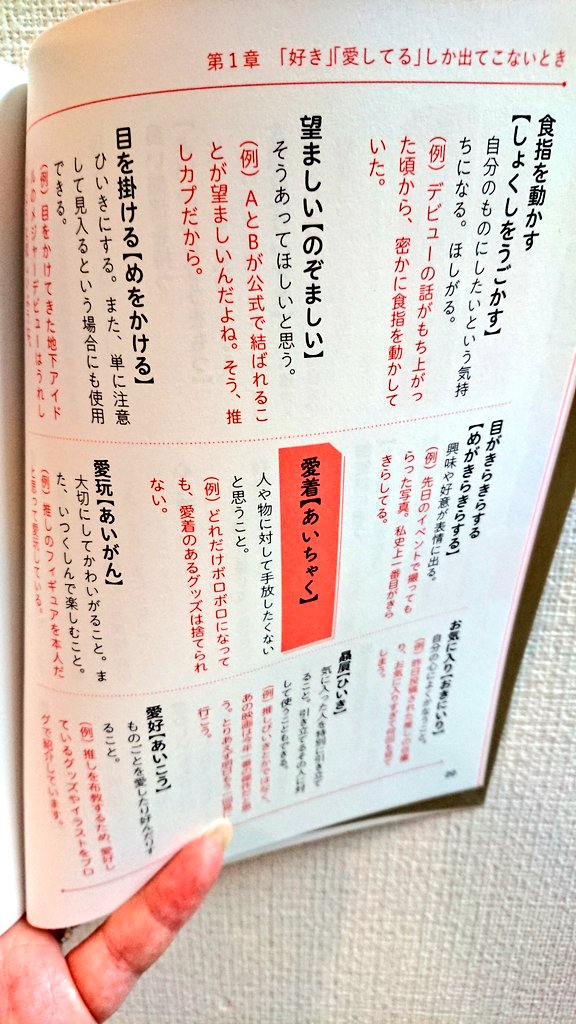 第1章 「好き」「愛してる」しか出てこないとき
食指を動かす
【しょくしをうごかす】
自分のものにしたいという気持
ちになる。ほしがる。
(例)デビューの話がもち上がっ
た頃から、密かに食指を動かして
いた。
望ましい【のぞましい】
そうあってほしいと思う。
(例)AとBが公式で結ばれるこ
とが望ましいんだよね。そう、推
しカプだから。
目を掛ける【めをかける】
ひいきにする。また、単に注意
して見入るという場合にも使用
できる。
(例)目をかけてきた地下アイド
ルのメジャーデビューはうれし
目がきらきらする
【めがきらきらする】
興味や好意が表情に出る。
(例)先日のイベントで撮っても
らった写真。私史上一番目がきら
きらしてる。
愛着【あいちゃく】
人や物に対して手放したくない
と思うこと。
(例)どれだけボロボロになって
も、愛着のあるグッズは捨てられ
ない。
愛玩【あいがん】
大切にしてかわいがること。ま
た、いつくしんで楽しむこと。
(例)推しのフィギュアを本人だ
と思って愛玩している。
お気に入り【おきにいり】
自分の心によくかなうこと。
(例)昨日投稿された推しの
り、お気に入りすぎて
しまう。
贔屓【ひいき】
気に入った人を特別に引き立て
ること。引き立てるその人に対
して使うこともできる。
(例)推しひいきとかではなく、
あの映画は今年一番の
う。とりあえず明日も
行こう。
愛好【あいこう】
ものごとを愛したり好んだりす
ること。
(例)推しを布教するため、愛好し
ているグッズやイラストをブロ
グで紹介しています。